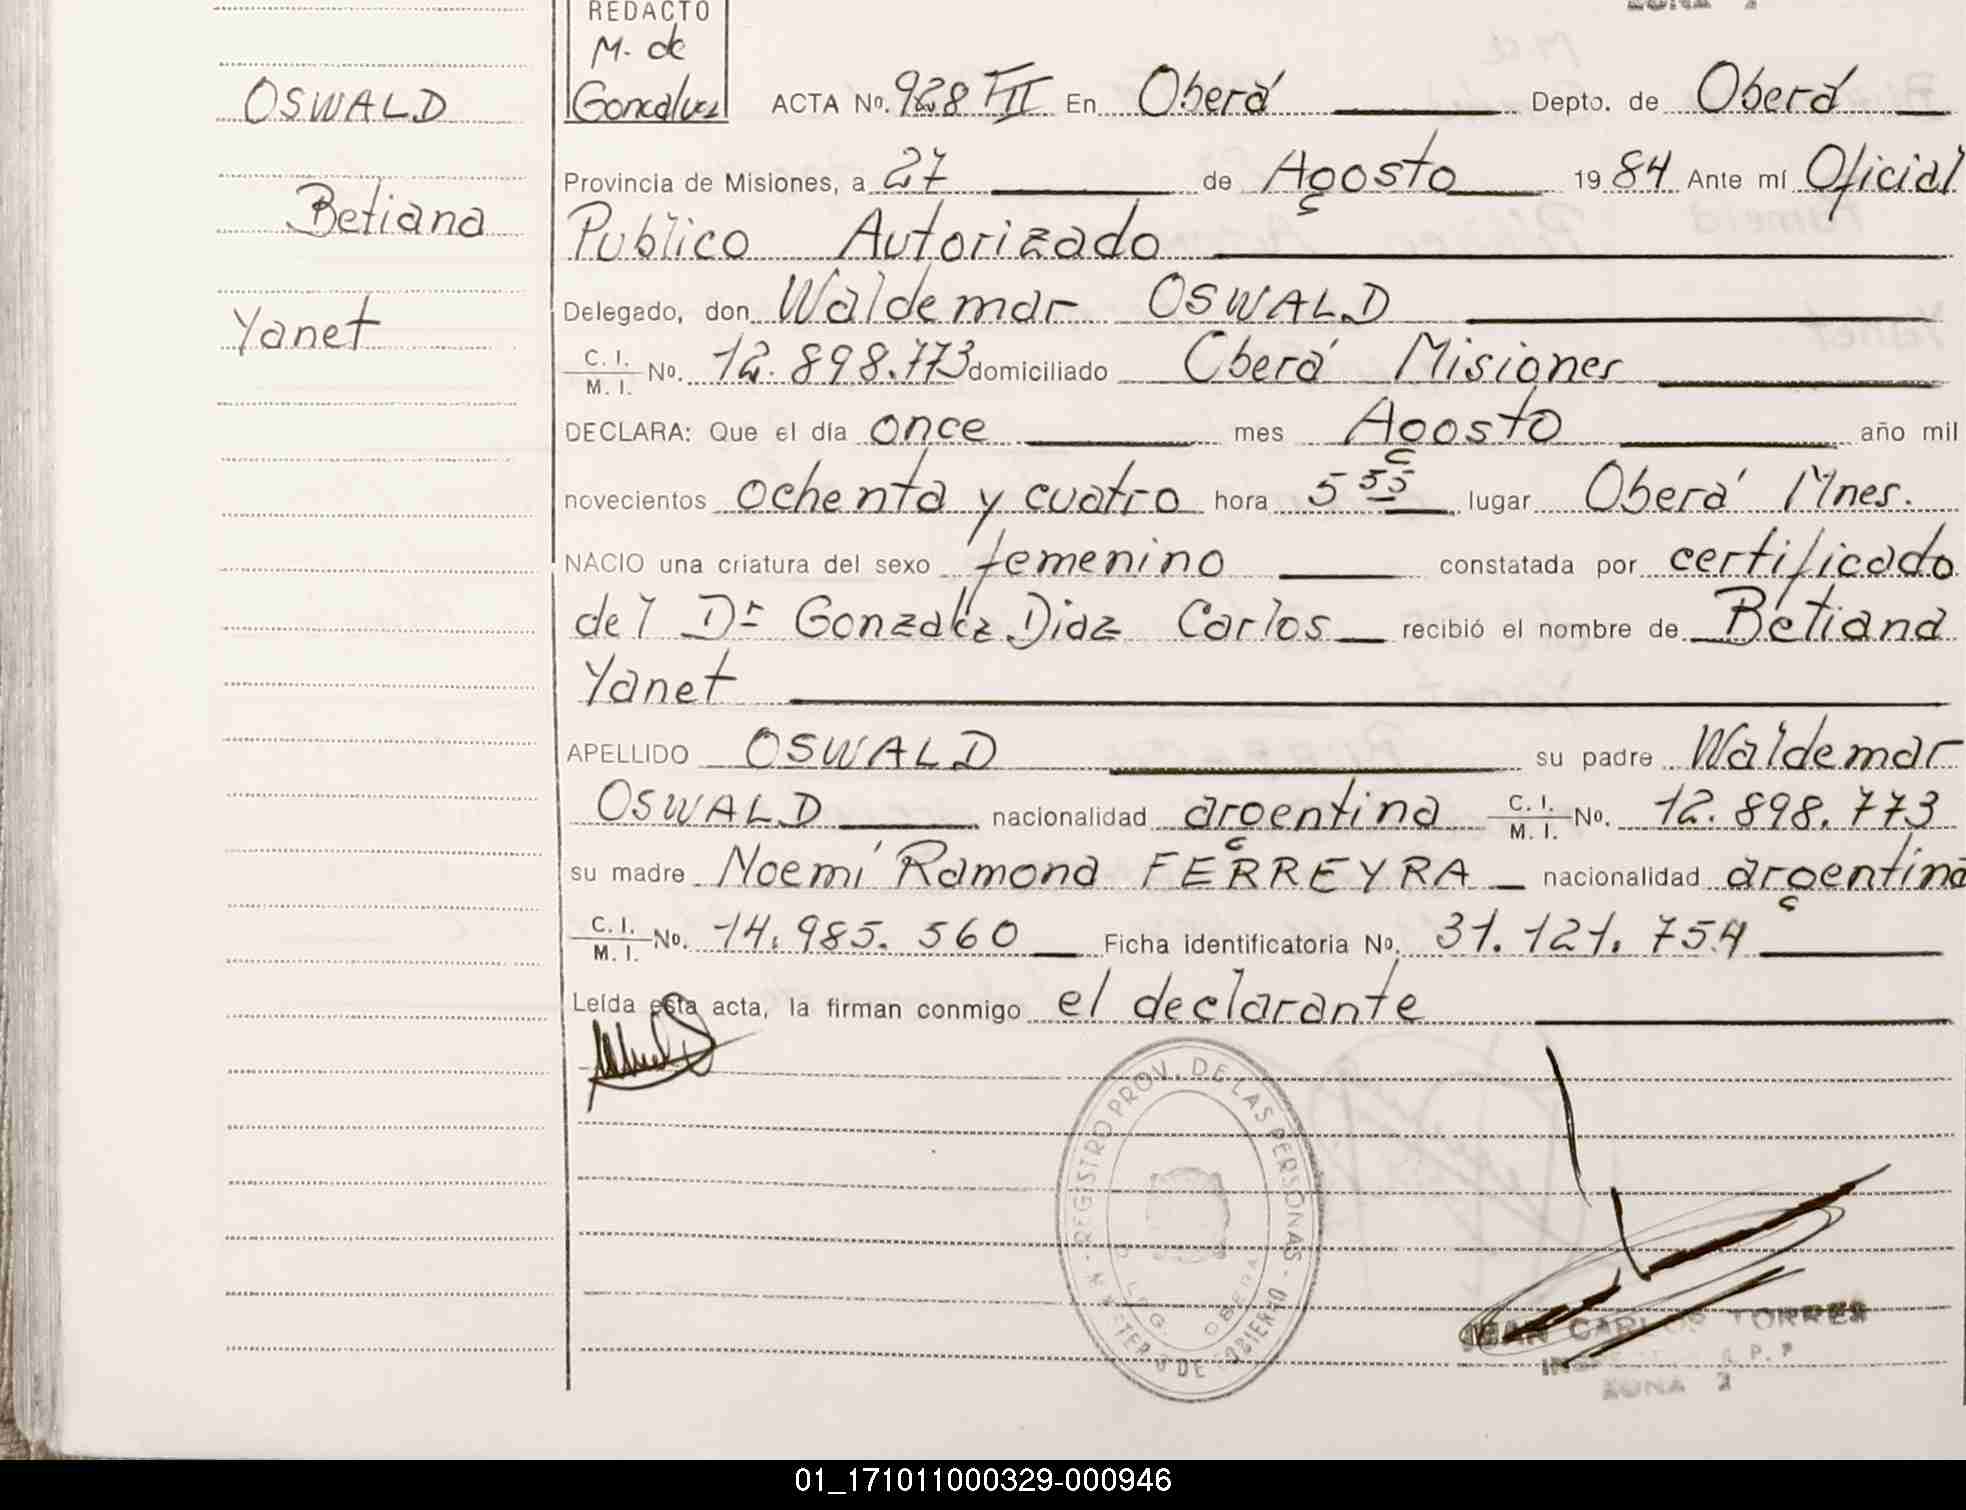 REDACTO
M. de
Goncalvez
OSWALD
Betiana
Yanet
ACTA No. 928 TII En Oberá Depto. de Oberá
Provincia de Misiones, a 27 de Agosto 1984 Ante mí Oficial
Publico Autorizado
Delegado, don Waldemar OSWALD
C. I. / M. I. No. 12.898.773 domiciliado Oberá Misiones
DECLARA: Que el día once mes Agosto año mil
novecientos ochenta y cuatro hora 5 55 lugar Oberá Mnes.
NACIO una criatura del sexo femenino constatada por certificado
del Dr Gonzalez Diaz Carlos recibió el nombre de Betiana
Yanet
APELLIDO OSWALD su padre Waldemar
OSWALD nacionalidad argentina C. I. / M. I. No. 12.898.773
su madre Noemí Ramona FERREYRA nacionalidad argentina
C. I. / M. I. No. 14.985.560 Ficha identificatoria No. 31.121.754
Leída esta acta, la firman conmigo el declarante
REGISTRO PROV. DE LAS PERSONAS
DE GOBIERNO
OBERA
JUAN CARLOS TORRES
ZONA 2
01_171011000329-000946